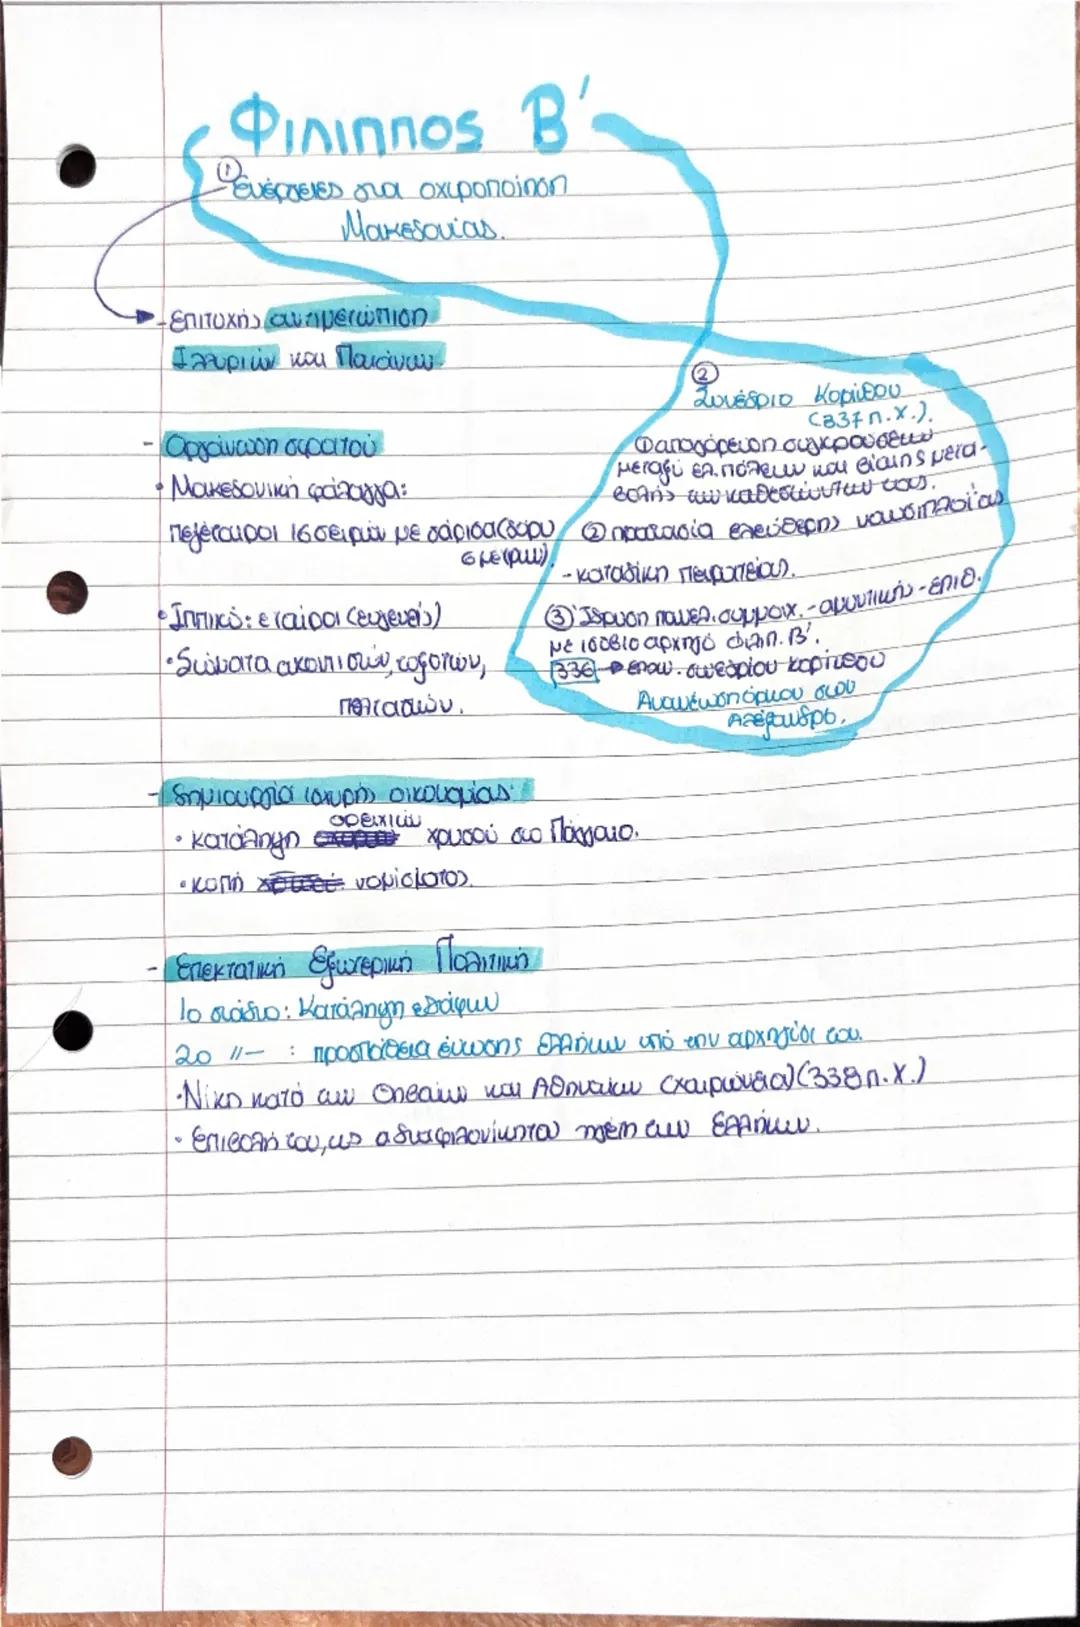 Φιλιππος Β'
① Ενέργειες για οχιροποίηση
Μακεδονίας.
- Επιτυχής αντιμετώπιση
Ιλλυριών και Παιόνων.
- Οργάνωση στρατού
• Μακεδονική φάλαγγα:
πεζέταιροι 16 σειρών με σάρισα (δόρυ
6 μέτρων).
• Ιππικό: εταίροι (ευγενείς)
• Σώματα ακοντιστών, τοξοτών,
πελταστών.
② Συνέδριο Κορίνθου
(337 π.Χ.).
① απαγόρευση συγκρούσεων
μεταξύ ελ. πόλεων και βίαιης μετα-
βολής των καθεστώτων τους.
② προστασία ελεύθερης ναυσιπλοΐας
- καταδίκη πειρατείας.
③ Ίδρυση πανελ. συμμαχ. - αμυντικής - επιθ.
με ισόβιο αρχηγό Φιλιπ. Β'.
336 → επαν. συνεδρίου Κορίνθου
Ανανέωση όρκου στον
Αλέξανδρο.
- Δημιουργία ισχυρής οικονομίας:
• κατάληψη ορειχιών χρυσού στο Πάγγαιο.
• κοπή νομίσματος.
- Επεκτατική Εξωτερική Πολιτική
1ο στάδιο: Κατάληψη εδάφων
2ο //— : προσπάθεια ένωσης Ελλήνων υπό την αρχηγία του.
• Νίκη κατά των Θηβαίων και Αθηναίων (Χαιρώνεια) (338 π.Χ.)
• Επιβολή του, ως αδιαφιλονίκητα ηγέτη των Ελλήνων.